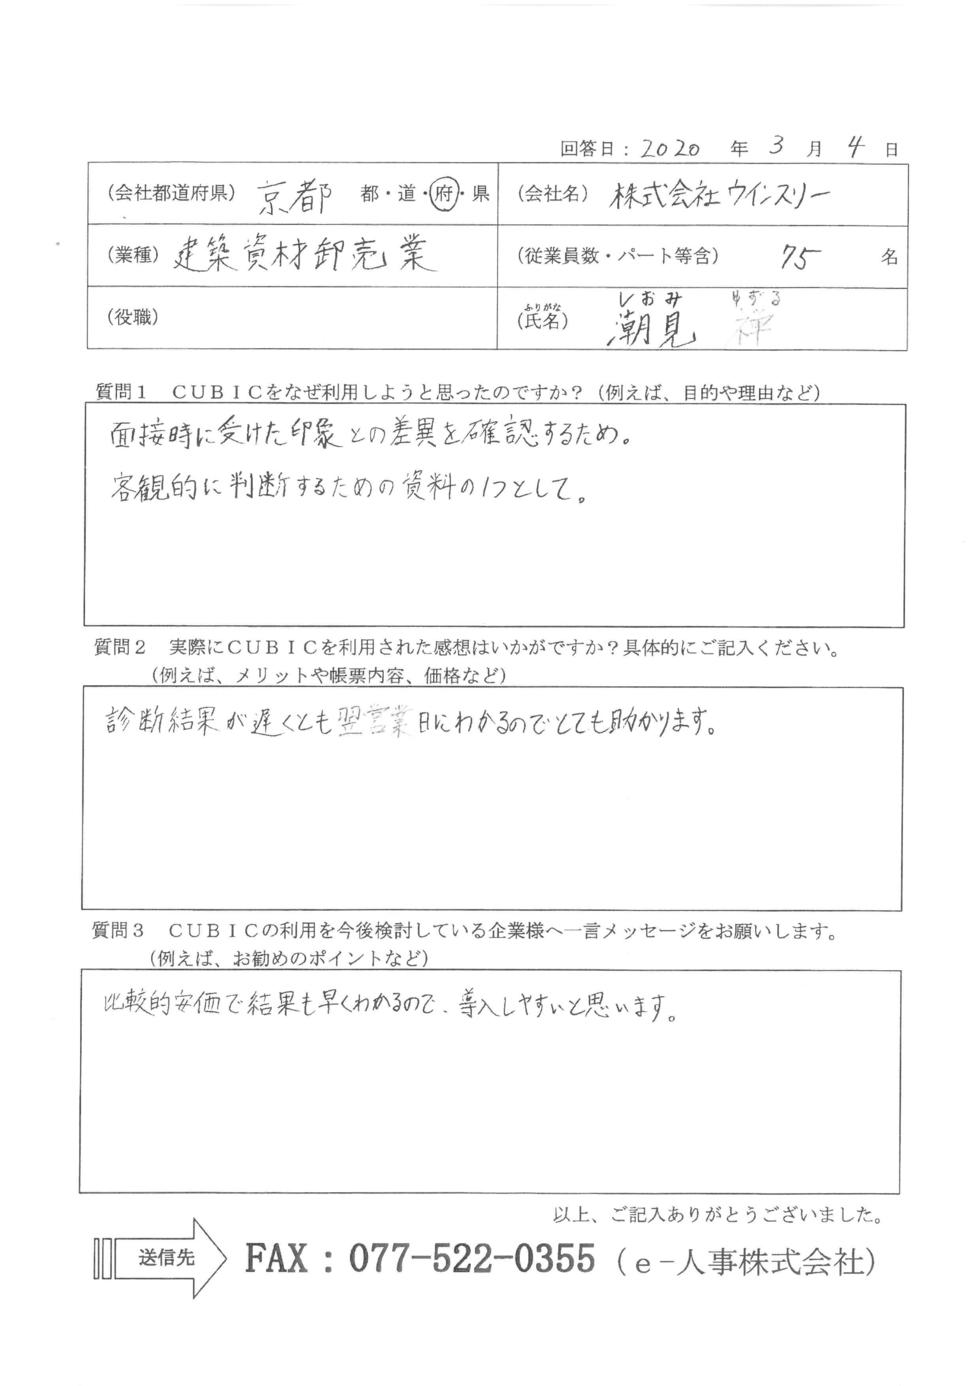 回答日：2020 年 3 月 4 日
（会社都道府県） 京都 都・道・府・県 （会社名） 株式会社ウインスリー
（業種） 建築資材卸売業 （従業員数・パート等含） 75 名
（役職） （氏名） ふりがな しおみ ゆずる 潮見 禅
質問１ ＣＵＢＩＣをなぜ利用しようと思ったのですか？（例えば、目的や理由など）
面接時に受けた印象との差異を確認するため。
客観的に判断するための資料の1つとして。
質問２ 実際にＣＵＢＩＣを利用された感想はいかがですか？具体的にご記入ください。
（例えば、メリットや帳票内容、価格など）
診断結果が遅くとも翌営業日にわかるのでとても助かります。
質問３ ＣＵＢＩＣの利用を今後検討している企業様へ一言メッセージをお願いします。
（例えば、お勧めのポイントなど）
比較的安価で結果も早くわかるので、導入しやすいと思います。
以上、ご記入ありがとうございました。
送信先 FAX：077-522-0355（e-人事株式会社）